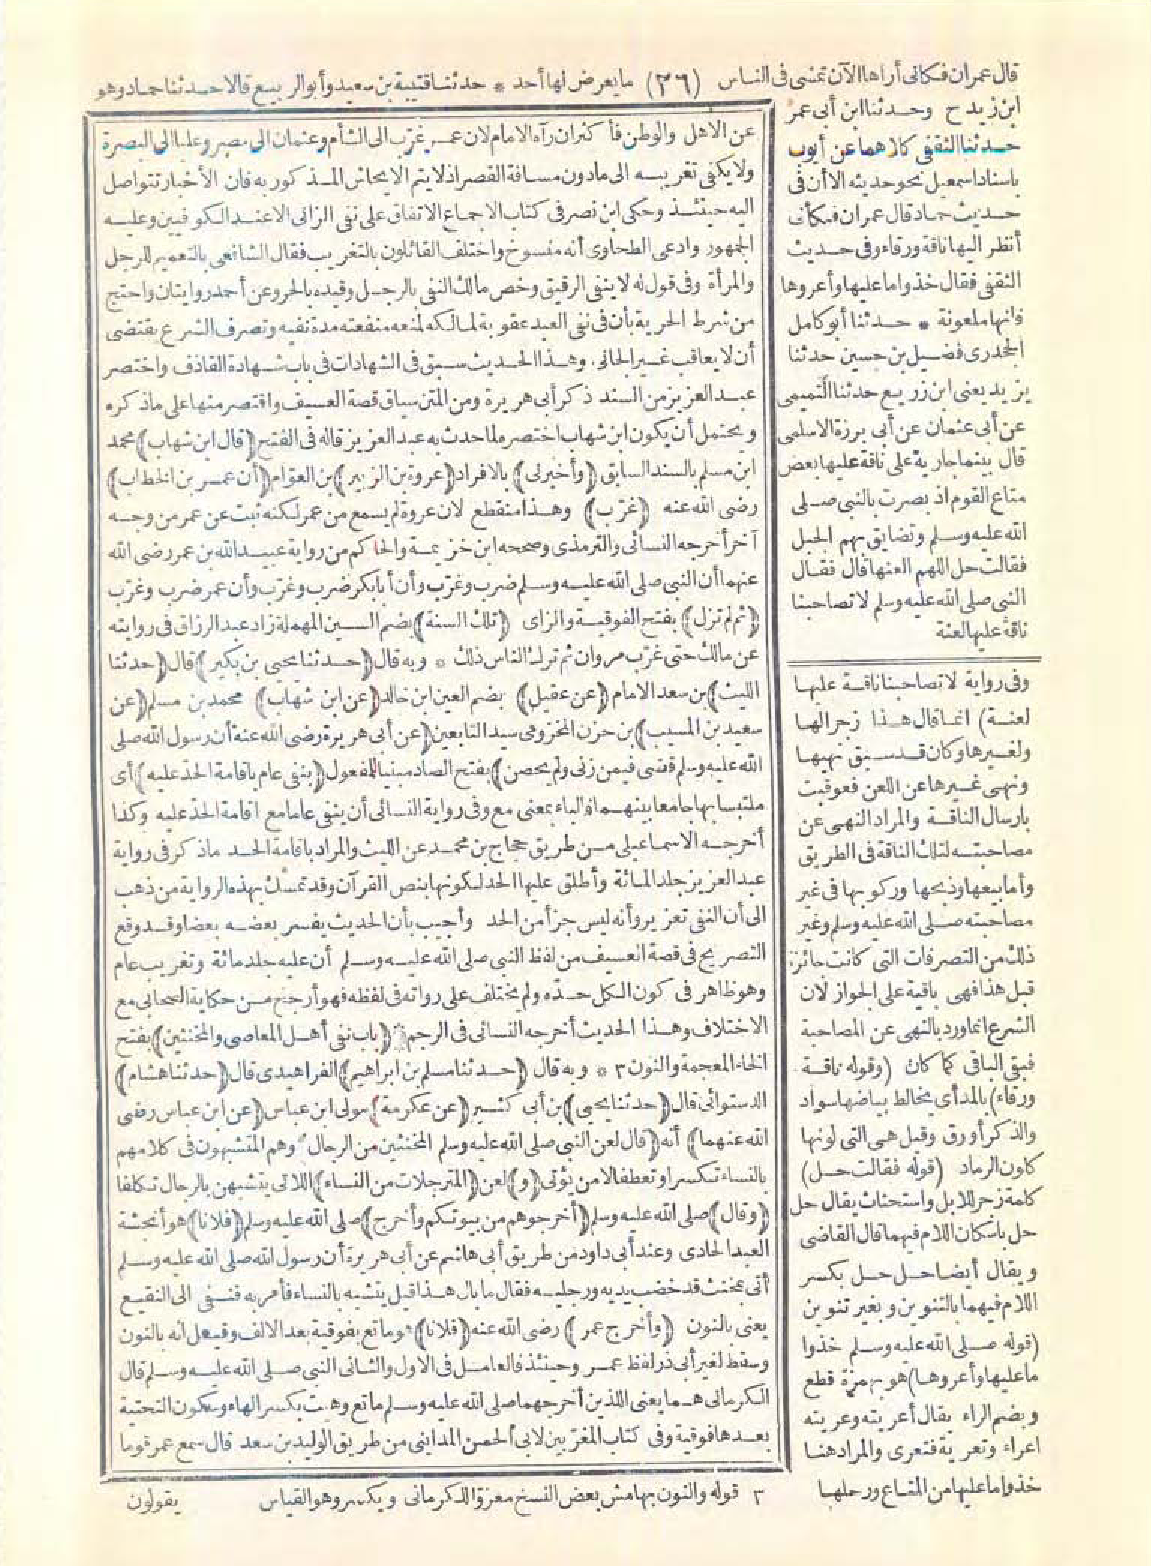 قال عمران فكانى أراها الآن تمشى فى الناس (٣٦) ما يعرض لها أحد * حدثنا قتيبة بن سعيد وأبو الربيع قالا حدثنا حماد وهو
ابن زيد ح وحدثنا ابن أبى عمر
حدثنا الثقفى كلاهما عن أيوب
باسناد اسمعيل نحو حديثه الا أن فى
حديث حماد قال عمران فكأنى
أنظر اليها ناقة ورقاء وفى حديث
الثقفى فقال خذوا ما عليها وأعروها
فانها ملعونة * حدثنا أبو كامل
الجحدرى فضيل بن حسين حدثنا
يزيد يعنى ابن زريع حدثنا التميمى
عن أبى عثمان عن أبى برزة الاسلمى
قال بينما جارية على ناقة عليها بعض
متاع القوم اذ بصرت بالنبى صلى
الله عليه وسلم وتضايق بهم الجبل
فقالت حل اللهم العنها قال فقال
النبى صلى الله عليه وسلم لا تصاحبنا
ناقة عليها لعنة
وفى رواية لا تصاحبنا ناقة عليها
لعنة) انما قال هذا زجرا لها
ولغيرها وكان قد سبق نهيها
ونهى غيرها عن اللعن فعوقبت
بارسال الناقة والمراد النهى عن
مصاحبته لتلك الناقة فى الطريق
وأما بيعها وذبحها وركوبها فى غير
مصاحبته صلى الله عليه وسلم وغير
ذلك من التصرفات التى كانت جائزة
قبل هذا فهى باقية على الجواز لان
الشرع انما ورد بالنهى عن المصاحبة
فبقى الباقى كما كان (وقوله ناقة
ورقاء) بالمد أى يخالط بياضها سواد
والذكر أورق وقيل هى التى لونها
كلون الرماد (قوله فقالت حل)
كلمة زجر للابل واستحثاث يقال حل
حل باسكان اللام فيهما قال القاضى
ويقال أيضا حل حل بكسر
اللام فيهما بالتنوين وبغير تنوين
(قوله صلى الله عليه وسلم خذوا
ما عليها وأعروها) هو بهمزة قطع
وبضم الراء يقال أعريته وعريته
اعراء وتعرية فتعرى والمراد هنا
خذوا ما عليها من المتاع ورحلها
عن الاهل والوطن فأكثران رآه الامام لان عمر غرّب الى الشأم وعثمان الى مصر وعليا الى البصرة
ولا يكفى تغريبه الى مادون مسافة القصر اذ لا يتم الايحاش المذكور به فان الأخبار تتواصل
اليه حينئذ وحكى ابن نصر فى كتاب الاجماع الاتفاق على نفى الزانى الا عند الكوفيين وعليه
الجمهور وادعى الطحاوى أنه منسوخ واختلف القائلون بالتغريب فقال الشافعى بالتعميم للرجل
والمرأة وفى قول له لا ينفى الرقيق وخص مالك النفى بالرجل وقيده بالحر وعن أحمد روايتان واحتج
من شرط الحرية بأن فى نفى العبد عقوبة لمالكه لمنعه منفعته مدة نفيه وتصرف الشرع يقتضى
أن لا يعاقب غير الجانى. وهذا الحديث سبق فى الشهادات فى باب شهادة القاذف واختصر
عبد العزيز من السند ذكر أبى هريرة ومن المتن سياق قصة العسيف واقتصر منها على ما ذكره
ويحتمل أن يكون ابن شهاب اختصره لما حدث به عبد العزيز قاله فى الفتح (قال ابن شهاب) محمد
ابن مسلم بالسند السابق (وأخبرنى) بالافراد (عروة بن الزبير) بن العوّام (أن عمر بن الخطاب)
رضى الله عنه (غرّب) وهذا منقطع لان عروة لم يسمع من عمر لكنه ثبت عن عمر من وجه
آخر أخرجه النسائى والترمذى وصححه ابن خزيمة والحاكم من رواية عبيد الله بن عمر رضى الله
عنهما أن النبى صلى الله عليه وسلم ضرب وغرّب وأن أبا بكر ضرب وغرّب وأن عمر ضرب وغرّب
(ثم لم تزل) بفتح الفوقية والزاى (تلك السنة) بضم السين المهملة زاد عبد الرزاق فى روايته
عن مالك حتى غرّب مروان ثم ترك الناس ذلك * وبه قال (حدثنا يحيى بن بكير) قال (حدثنا
الليث) بن سعد الامام (عن عقيل) بضم العين ابن خالد (عن ابن شهاب) محمد بن مسلم (عن
سعيد بن المسيب) بن حزن المخزومى سيد التابعين (عن أبى هريرة رضى الله عنه أن رسول الله صلى
الله عليه وسلم قضى فيمن زنى ولم يحصن) بفتح الصاد مبنيا للمفعول (بنفى عام باقامة الحدّ عليه) أى
ملتبسا بها جامعا بينهما فالباء بمعنى مع وفى رواية النسائى أن ينفى عاما مع اقامة الحدّ عليه وكذا
أخرجه الاسماعيلى من طريق حجاج بن محمد عن الليث والمراد باقامة الحد ما ذكر فى رواية
عبد العزيز جلد المائة وأطلق عليها الحد لكونها بنص القرآن وقد تمسّك بهذه الرواية من ذهب
الى أن النفى تعزير وأنه ليس جزأ من الحد وأجيب بأن الحديث يفسر بعضه بعضا وقد وقع
التصريح فى قصة العسيف من لفظ النبى صلى الله عليه وسلم أن عليه جلد مائة وتغريب عام
وهو ظاهر فى كون الكل حدّه ولم يختلف على رواته فى لفظه فهو أرجح من حكاية الصحابى مع
الاختلاف وهذا الحديث أخرجه النسائى فى الرجم (باب نفى أهل المعاصى والمخنثين) بفتح
الخاء المعجمة والنون ٣ * وبه قال (حدثنا مسلم بن ابراهيم) الفراهيدى قال (حدثنا هشام)
الدستوائى قال (حدثنا يحيى) بن أبى كثير (عن عكرمة) مولى ابن عباس (عن ابن عباس رضى
الله عنهما) أنه (قال لعن النبى صلى الله عليه وسلم المخنثين من الرجال) وهم المتشبهون فى كلامهم
بالنساء تكسرا وتعطفا لا من يؤتى (و) لعن (المترجلات من النساء) اللاتى يتشبهن بالرجال تكلفا
(وقال) صلى الله عليه وسلم (أخرجوهم من بيوتكم وأخرج) صلى الله عليه وسلم (فلانا) هو أنجشة
العبد الحادى وعند أبى داود من طريق أبى هاشم عن أبى هريرة أن رسول الله صلى الله عليه وسلم
أتى بمخنث قد خضب يديه ورجليه فقال ما بال هذا قيل يتشبه بالنساء فأمر به فنفى الى النقيع
يعنى بالنون (وأخرج عمر) رضى الله عنه (فلانا) هو ماتع بفوقية بعد الالف وقيل انه بالنون
وسقط لغير أبى ذر لفظ عمر وحينئذ فالعامل فى الاول والثانى النبى صلى الله عليه وسلم قال
الكرمانى هما يعنى اللذين أخرجهما صلى الله عليه وسلم ماتع وهيت بكسر الهاء وسكون التحتية
بعدها فوقية وفى كتاب المغرّبين لابى الحسن المداينى من طريق الوليد بن سعد قال سمع عمر قوما
٣ قوله والنون بهامش بعض النسخ معزوّا للكرمانى ويكسر وهو القياس
يقولون